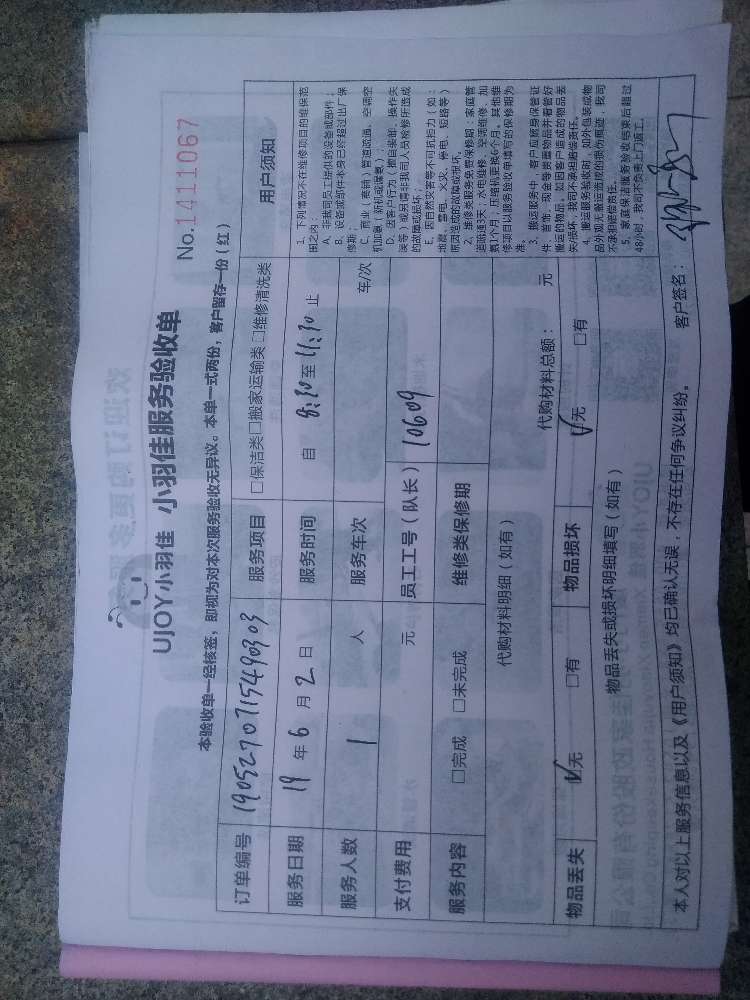 UJOY小羽佳 小羽佳服务验收单
No.1411067
本验收单一经核签，即视为对本次服务验收无异议。本单一式两份，客户留存一份（红）
订单编号 190527071549 0303 服务项目 □保洁类□搬家运输类 □维修清洗类
服务日期 19 年 6 月 2 日 服务时间 自 8:30 至 11:30 止
服务人数 1 人 服务车次 车/次
支付费用 元 员工工号（队长） 10609
服务内容 □完成 □未完成 维修类保修期
代购材料明细（如有） 代购材料总额： 元
物品丢失 ☑无 □有 物品损坏 ☑无 □有
物品丢失或损坏明细填写（如有）
用户须知
1、下列情况不在维修项目的维保范
围之内：
A、非我司员工提供的设备或部件；
B、设备或部件本身已经超过出厂保
修期；
C、商业（商铺）管道疏通、空调空
机加氨（新机或旧氨）；
D、因客户行为（擅自装卸、操作失
误等）或另请非我司人员检修所造成
的故障或损坏；
E、因自然灾害等不可抗拒力（如：
地震、雷电、火灾、停电、短路等）
原因造成的故障或损坏。
2、维修类服务免费保修期：家庭管
道疏通3天；水电维修、空调维修、加
氨1个月；压缩机更换6个月。其他维
修项目以服务验收单填写的保修期为
准。
3、搬运服务中，客户应随身保管证
件、首饰、现金等贵重物品并看管好
搬运的物品。如因客户造成的物品丢
失/损坏，我司不承担赔偿责任。
4、搬运服务验收时，如外包装或物
品外观无搬运造成的损伤痕迹，我司
不承担赔偿责任。
5、家庭保洁服务验收结束后超过
48小时，我司不负责上门返工。
本人对以上服务信息以及《用户须知》均已确认无误，不存在任何争议纠纷。 客户签名：